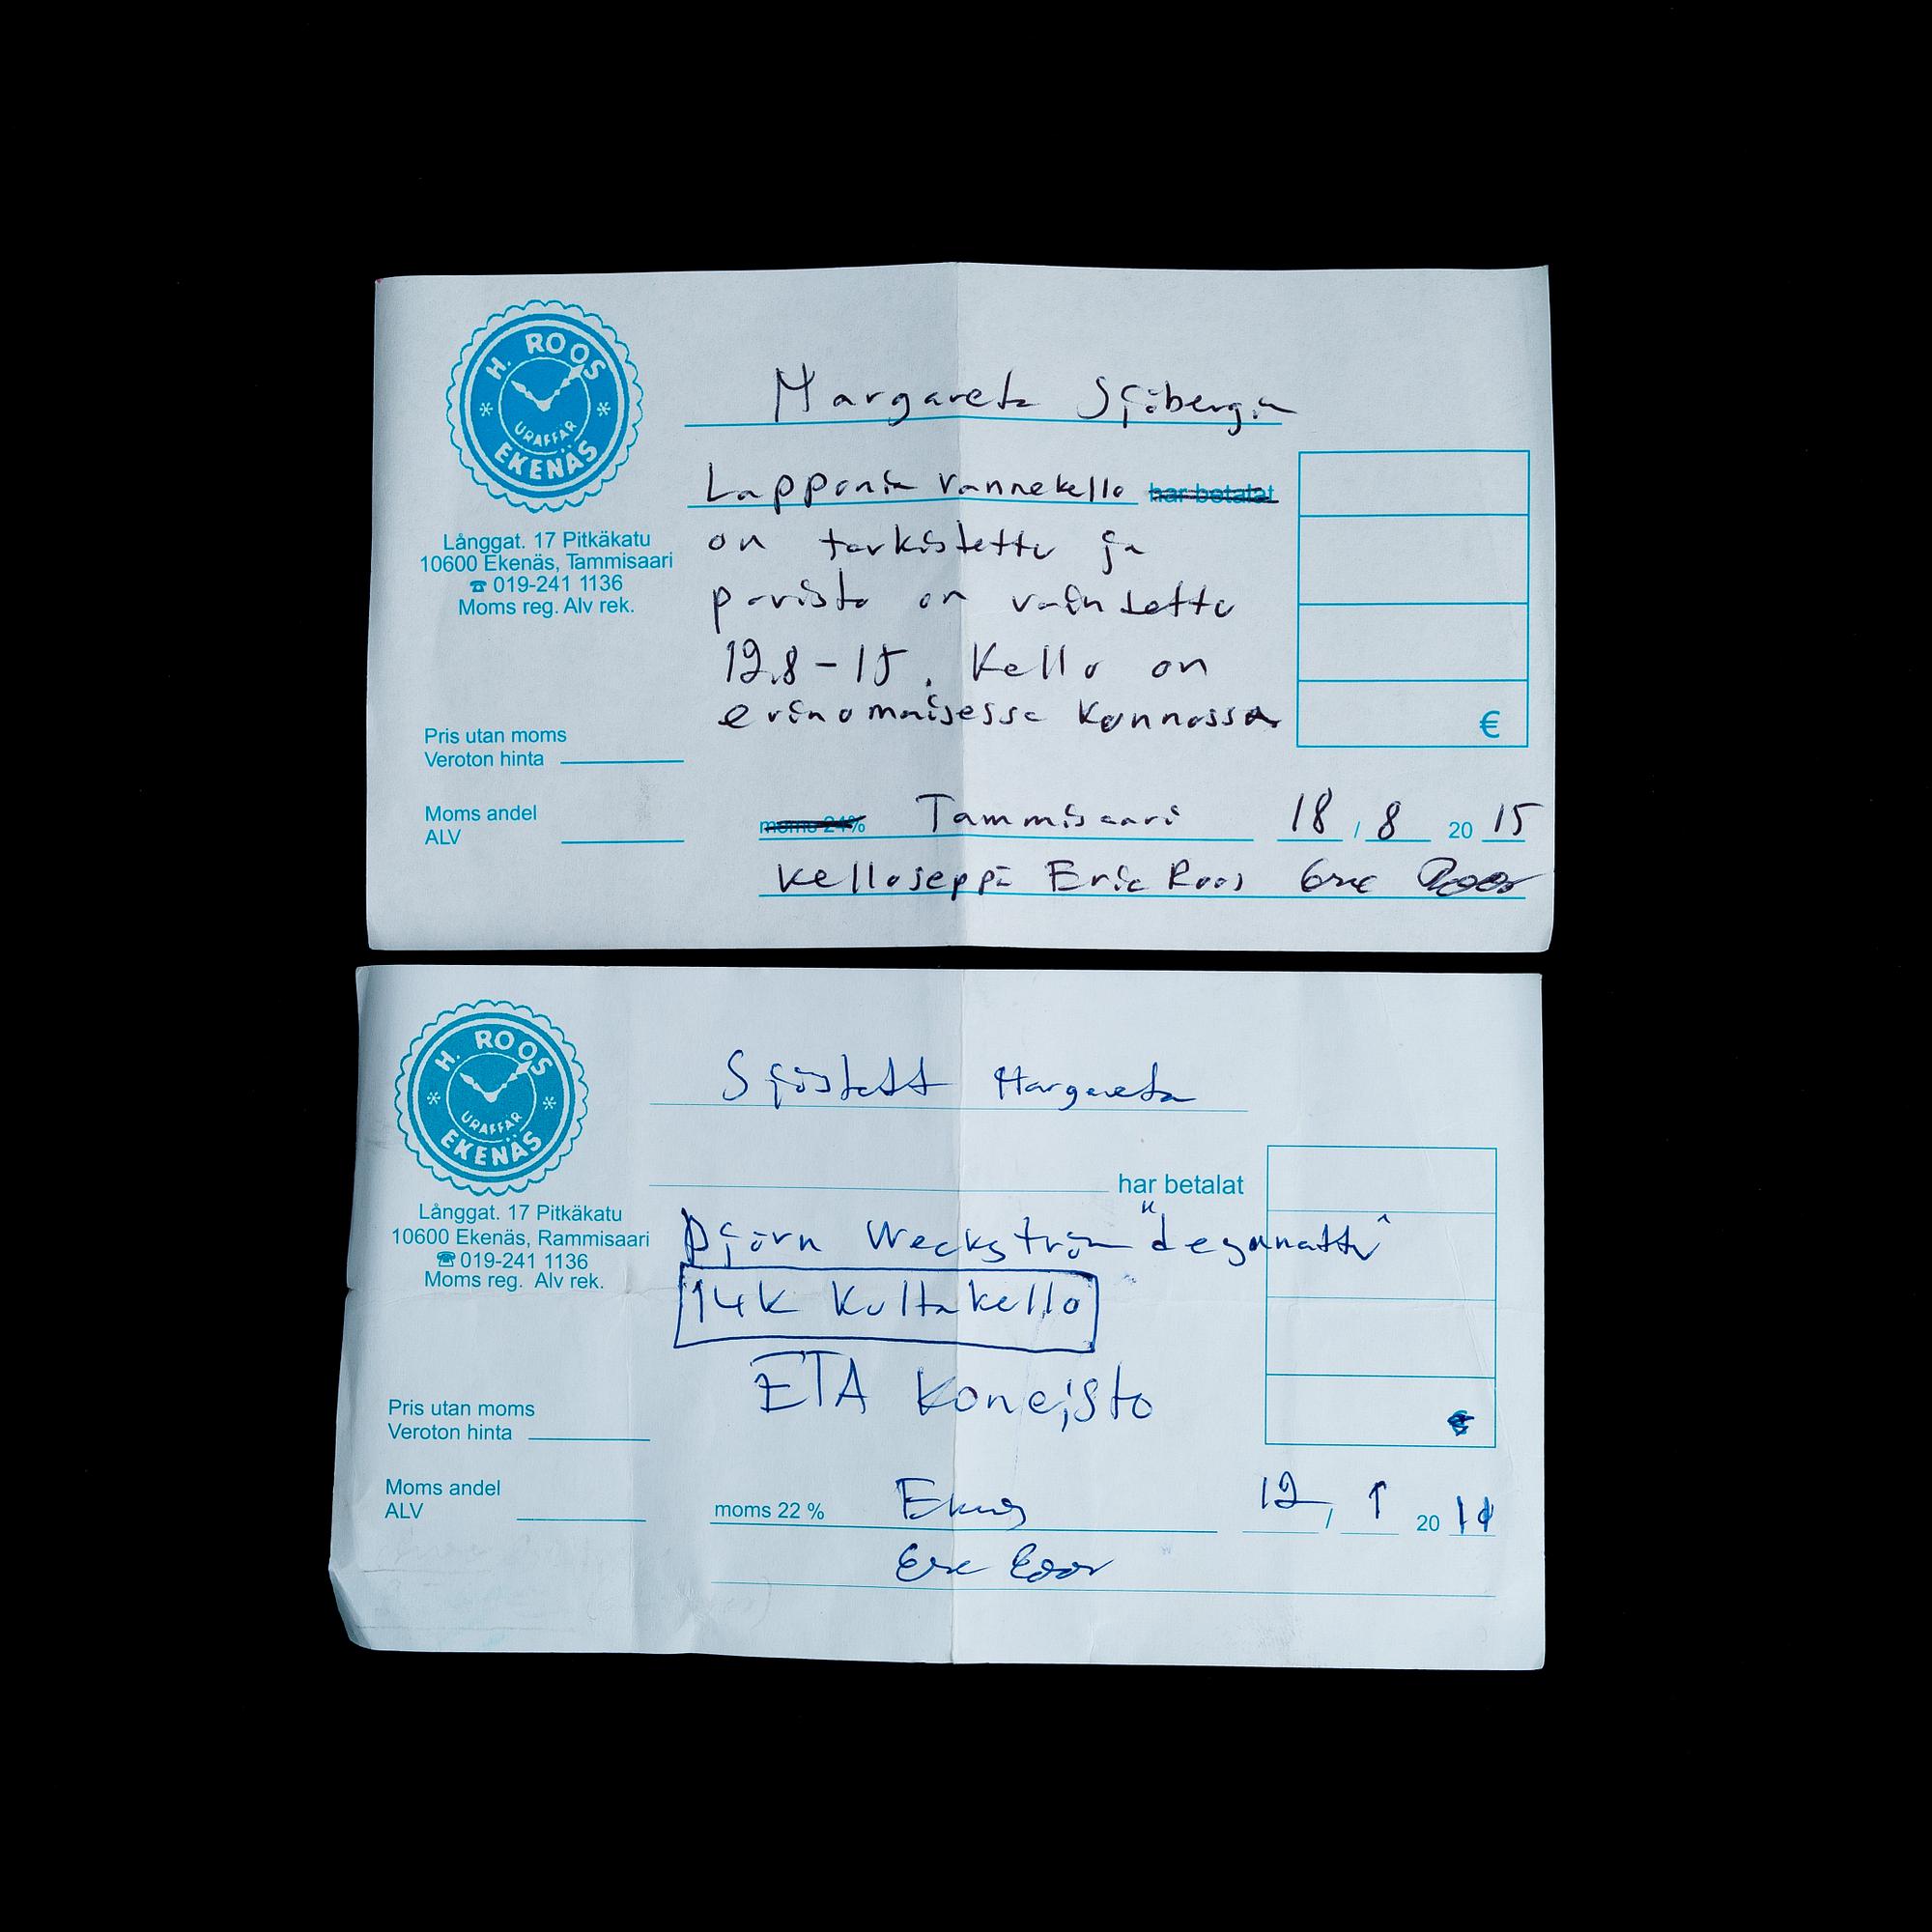 H. ROOS
URAFFÄR
EKENÄS
Långgat. 17 Pitkäkatu
10600 Ekenäs, Tammisaari
☎ 019-241 1136
Moms reg. Alv rek.
Margareta Sjöbergin
Lapponia rannekello har betalat
on tarkistettu ja
paristo on vaihdettu
12.8-15. Kello on
erinomaisessa kunnossa
€
Pris utan moms
Veroton hinta
Moms andel
ALV
moms 24% Tammisaari 18 / 8 20 15
Kelloseppä Eric Roos Eric Roos
H. ROOS
URAFFÄR
EKENÄS
Långgat. 17 Pitkäkatu
10600 Ekenäs, Rammisaari
☎ 019-241 1136
Moms reg. Alv rek.
Margareta
har betalat
Björn Weckström
14k Kultakello
ETA Koneisto
€
Pris utan moms
Veroton hinta
Moms andel
ALV
moms 22 % Ekenäs 12 / 1 20
Eric Roos